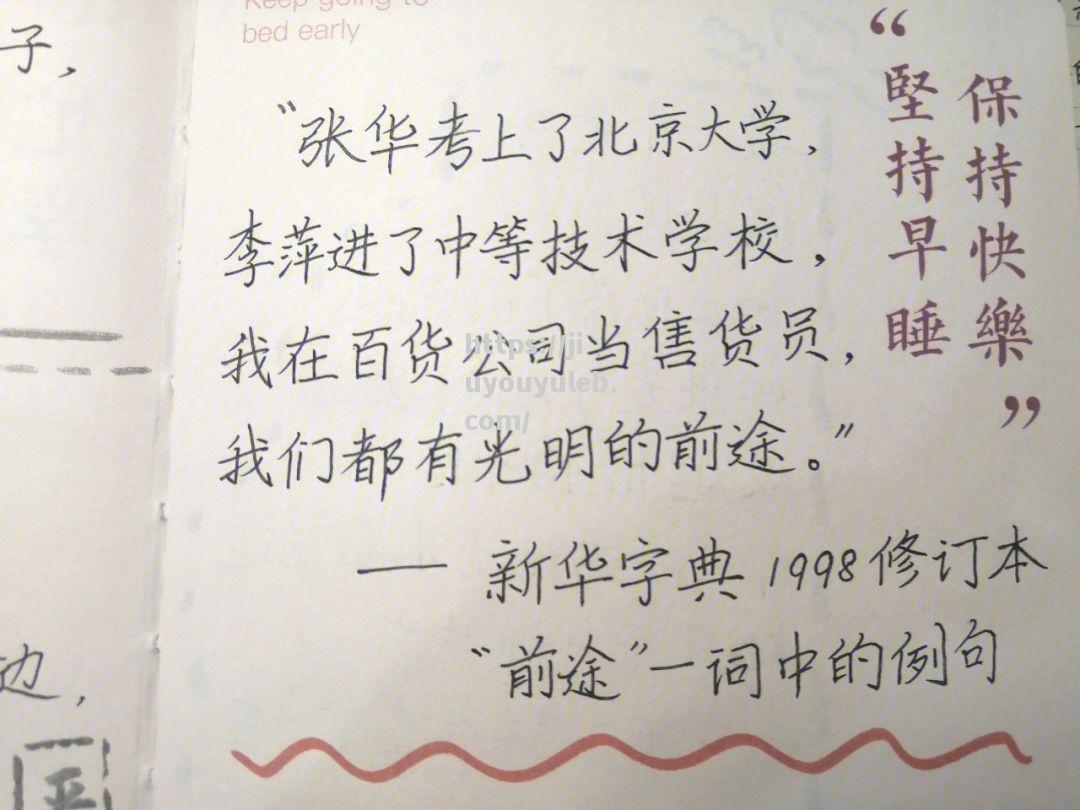 Keep going to
bed early
“张华考上了北京大学，
李萍进了中等技术学校，
我在百货公司当售货员，
我们都有光明的前途。”
— 新华字典 1998 修订本
“前途”一词中的例句
“保持快樂
堅持早睡”
https://ji
uyouyuleb.
com/
子，
边，